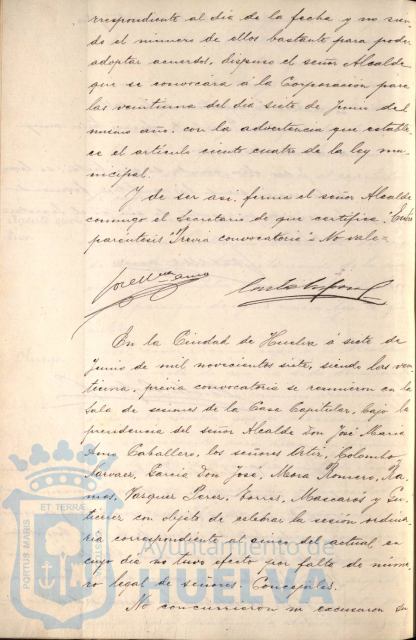 rrespondiente al dia de la fecha y no sien-
do el número de ellos bastante para poder
adoptar acuerdos, dispuso el señor Alcalde
que se convocára á la Corporación para
las veintiuna del dia siete de Junio del
mismo año, con la advertencia que estable-
ce el artículo ciento cuatro de la ley mu-
nicipal.
Y de ser asi, firma el señor Alcalde
conmigo el Secretario de que certifico. Entre
paréntesis "Previa convocatoria" No vale
En la Ciudad de Huelva á siete de
Junio de mil novecientos siete, siendo las vein-
tiuna, previa convocatoria se reunieron en la
Sala de sesiones de la Casa Capitular, bajo la
presidencia del señor Alcalde Don José Maria
Amo Caballero, los señores Ortiz, Colombo,
Narvaez, Garcia Don José, Mora Romero, Ra-
mos, Vazquez Perez, Torres, Mascarós y Gu-
tierrez con objeto de celebrar la sesión ordina-
ria correspondiente al cinco del actual, en
cuyo dia no tuvo efecto por falta de núme-
ro legal de señores Concejales.
No concurrieron ni excusaron su
PORTUS MARIS ET TERRÆ
Ayuntamiento de
HUELVA